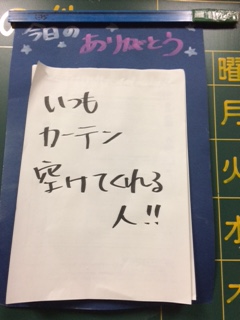 今日の ありがとう
いつも
カーテン
空けてくれる
人!!
曜
月
火
水
木